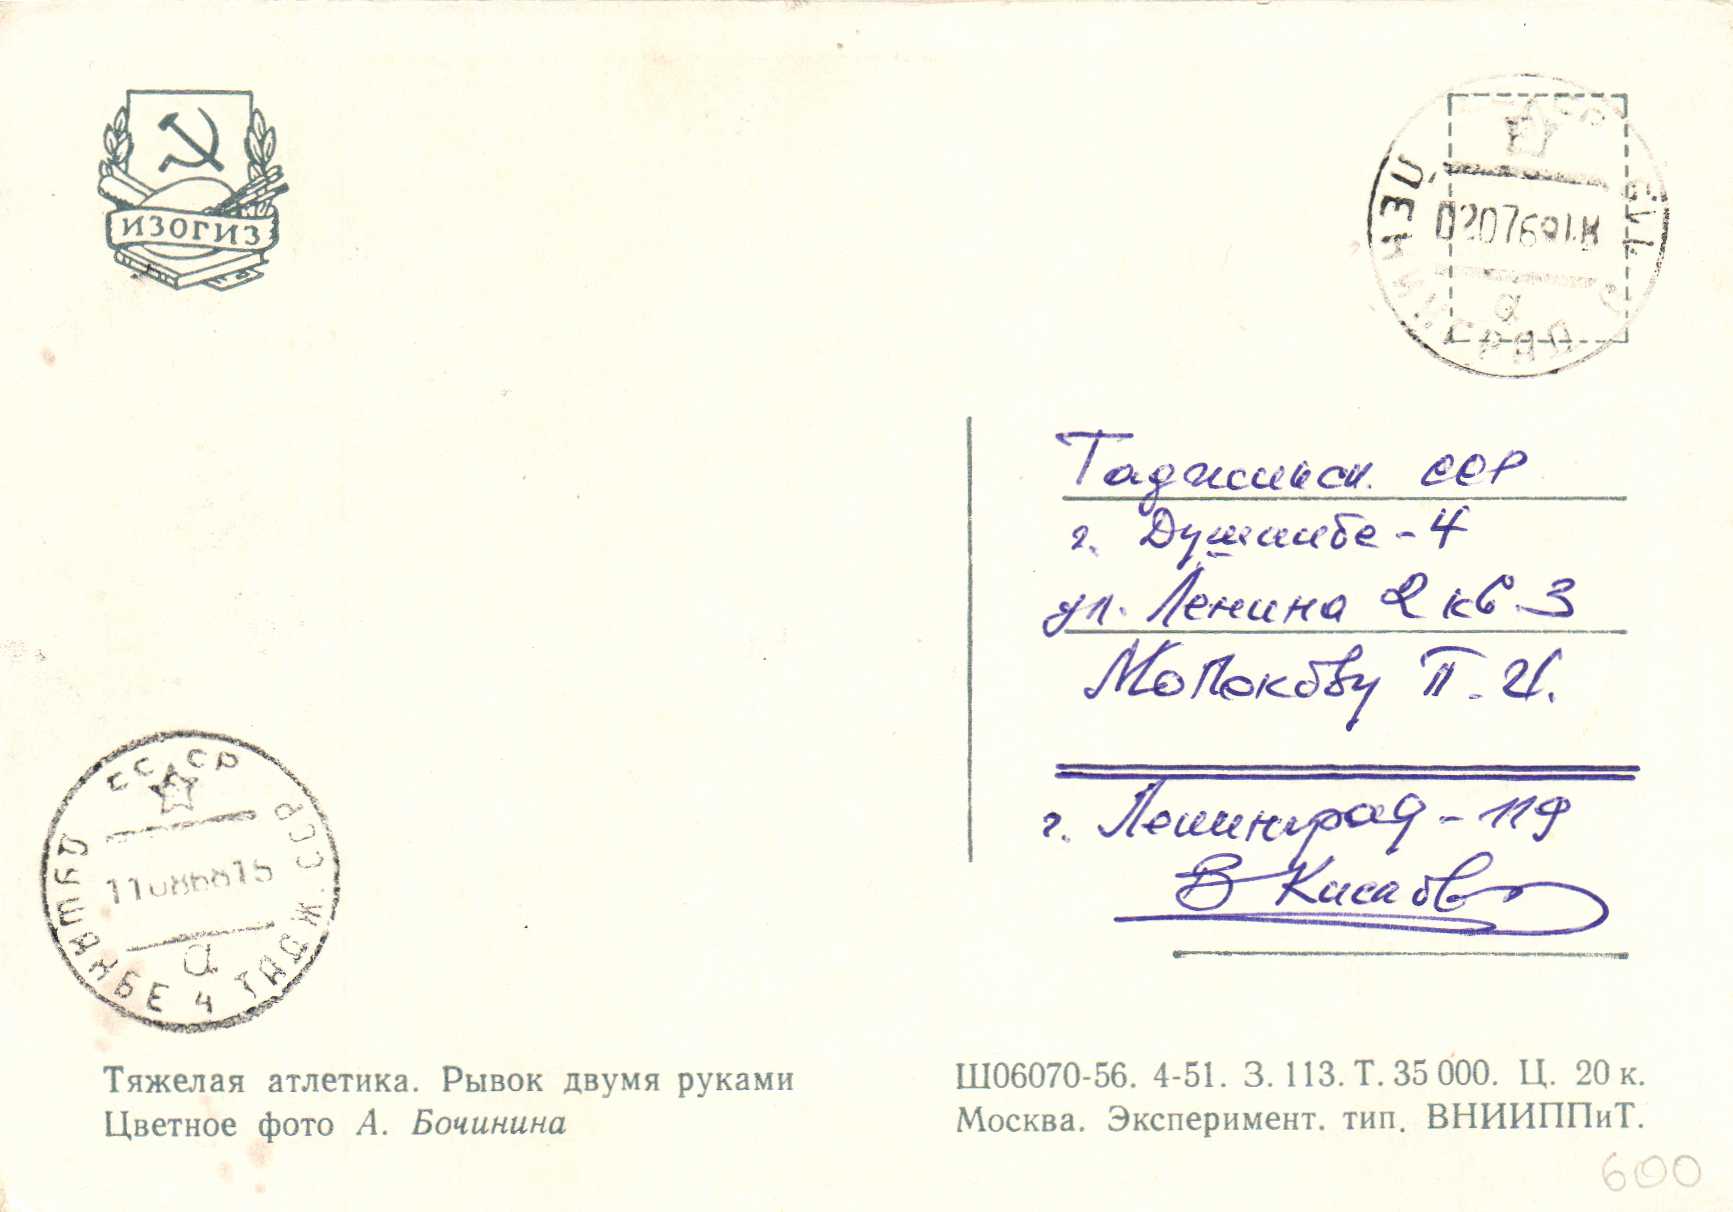 ИЗОГИЗ
Таджикск. ССР
г. Душанбе-4
ул. Ленина 2 кв. 3
Молокову П. И.
г. Ленинград-119
В Кисаов
СССР
ДУШАНБЕ 4 ТАДЖ. ССР
а
Тяжелая атлетика. Рывок двумя руками
Цветное фото А. Бочинина
Ш06070-56. 4-51. З. 113. Т. 35 000. Ц. 20 к.
Москва. Эксперимент. тип. ВНИИППиТ.
600